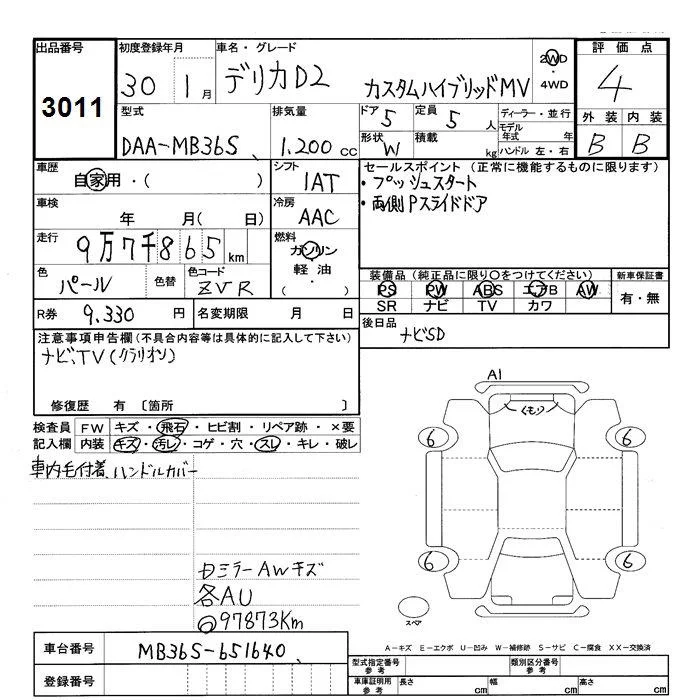 出品番号 初度登録年月 車名・グレード 評価点
3011 30 1月 デリカD2 カスタムハイブリッドMV 2WD・4WD 4
型式 排気量 ドア 5 定員 5人 ディーラー・並行 外装 内装
DAA-MB36S 1.200cc 形状 W 積載 kg モデル年式 年 ハンドル 左・右 B B
車歴 自家用・( ) シフト 1AT セールスポイント (正常に機能するものに限ります)
・プッシュスタート
・両側Pスライドドア
車検 年 月(日) 冷房 AAC
走行 9万7千865km 燃料 ガソリン
軽油・( )
色 パール 色替 色コード ZVR
装備品(純正品に限り○をつけてください) 新車保証書
PS PW ABS エアB AW 有・無
SR ナビ TV カワ
R券 9.330円 名変期限 月 日
後日品 ナビSD
注意事項申告欄(不具合内容等は具体的に記入して下さい)
ナビ、TV(クラリオン)
修復歴 有 〔箇所 〕
検査員 FW キズ・飛石・ヒビ割・リペア跡・×要
記入欄 内装 キズ・汚レ・コゲ・穴・スレ・キレ・破レ
車内毛付着、ハンドルカバー
ミラーAWキズ
各AU
97873Km
A1
くもり
6 6
6 6
スペア
A-キズ E-エクボ U-凹み W-補修跡 S-サビ C-腐食 XX-交換済
車台番号 MB36S-651640
登録番号
型式指定番号 参考 類別区分番号 参考
車庫証明用 参考 長さ cm 幅 cm 高さ cm